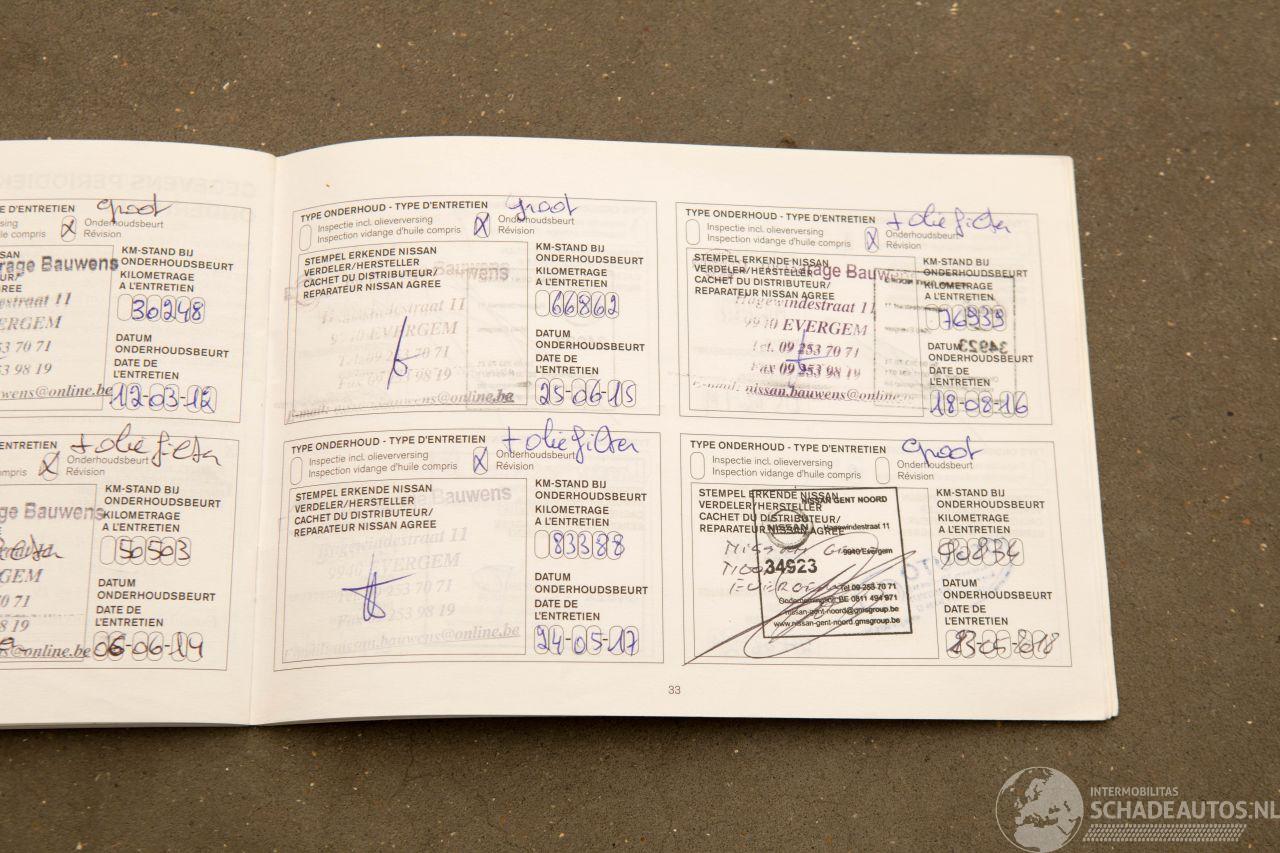 E D'ENTRETIEN groot
versing Onderhoudsbeurt
uile compris X Révision
SSAN
R/
REE
rage Bauwens
estraat 11
VERGEM
53 70 71
53 98 19
wens@online.be
KM-STAND BIJ
ONDERHOUDSBEURT
KILOMETRAGE
A L'ENTRETIEN
30248
DATUM
ONDERHOUDSBEURT
DATE DE
L'ENTRETIEN
12-03-12
ENTRETIEN + oliefilter
Onderhoudsbeurt
mpris X Révision
ge Bauwens
raat 11
GEM
0 71
19
s@online.be
KM-STAND BIJ
ONDERHOUDSBEURT
KILOMETRAGE
A L'ENTRETIEN
50503
DATUM
ONDERHOUDSBEURT
DATE DE
L'ENTRETIEN
06-06-14
TYPE ONDERHOUD - TYPE D'ENTRETIEN groot
Inspectie incl. olieverversing
Inspection vidange d'huile compris
X Onderhoudsbeurt
Révision
STEMPEL ERKENDE NISSAN
VERDELER/HERSTELLER
CACHET DU DISTRIBUTEUR/
REPARATEUR NISSAN AGREE
Bauwens
straat 11
EVERGEM
253 70 71
Fax 09 253 98 19
E-mail: nissan.bauwens@online.be
KM-STAND BIJ
ONDERHOUDSBEURT
KILOMETRAGE
A L'ENTRETIEN
66862
DATUM
ONDERHOUDSBEURT
DATE DE
L'ENTRETIEN
25-06-15
TYPE ONDERHOUD - TYPE D'ENTRETIEN + oliefilter
Inspectie incl. olieverversing
Inspection vidange d'huile compris
X Onderhoudsbeurt
Révision
STEMPEL ERKENDE NISSAN
VERDELER/HERSTELLER
CACHET DU DISTRIBUTEUR/
REPARATEUR NISSAN AGREE
Garage Bauwens
Hogewindestraat 11
9940 EVERGEM
253 70 71
253 98 19
E-mail: nissan.bauwens@online.be
KM-STAND BIJ
ONDERHOUDSBEURT
KILOMETRAGE
A L'ENTRETIEN
83388
DATUM
ONDERHOUDSBEURT
DATE DE
L'ENTRETIEN
24-05-17
TYPE ONDERHOUD - TYPE D'ENTRETIEN + oliefilter
Inspectie incl. olieverversing
Inspection vidange d'huile compris
X Onderhoudsbeurt
Révision
STEMPEL ERKENDE NISSAN
VERDELER/HERSTELLER
CACHET DU DISTRIBUTEUR/
REPARATEUR NISSAN AGREE
Garage Bauwens
Hogewindestraat 11
9940 EVERGEM
Tel. 09 253 70 71
Fax 09 253 98 19
E-mail: nissan.bauwens@online.be
KM-STAND BIJ
ONDERHOUDSBEURT
KILOMETRAGE
A L'ENTRETIEN
76939
34923
DATUM
ONDERHOUDSBEURT
DATE DE
L'ENTRETIEN
18-08-16
TYPE ONDERHOUD - TYPE D'ENTRETIEN groot
Inspectie incl. olieverversing
Inspection vidange d'huile compris
Onderhoudsbeurt
Révision
STEMPEL ERKENDE NISSAN
VERDELER/HERSTELLER
CACHET DU DISTRIBUTEUR/
REPARATEUR NISSAN AGREE
NISSAN GENT NOORD
NISSAN
Hogewindestraat 11
9940 Evergem
34923
Tel 09 253 70 71
Ondernemingsnr. BE 0811 494 971
nissan-gent-noord@gmsgroup.be
www.nissan-gent-noord.gmsgroup.be
Nissan Gent
Noord
Evergem
KM-STAND BIJ
ONDERHOUDSBEURT
KILOMETRAGE
A L'ENTRETIEN
90834
DATUM
ONDERHOUDSBEURT
DATE DE
L'ENTRETIEN
33
INTERMOBILITAS
SCHADEAUTOS.NL